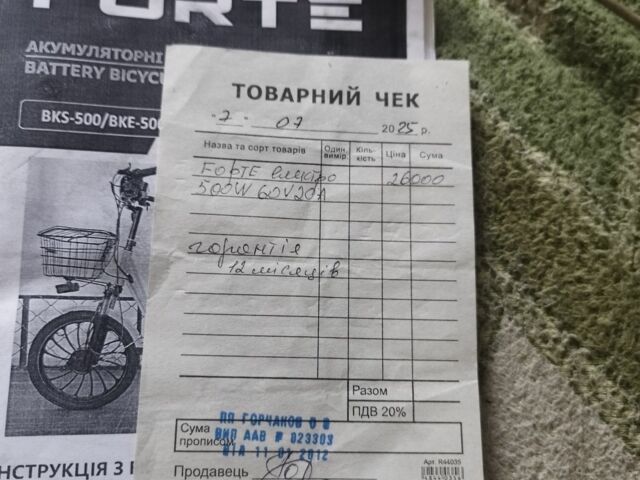 FORTE
АКУМУЛЯТОРНІ
BATTERY BICYC
BKS-500/BKE-500
ТОВАРНИЙ ЧЕК
"7" 07 2025 р.
Назва та сорт товарів Один. виміру Кіль- кість Ціна Сума
FORTE електро 26000
500W 60V20A
гарантія
12 місяців
Разом
ПДВ 20%
Сума прописом
ПП ГОРЧАКОВ О В
ВИП ААВ № 023303
ВІД 11 01 2012
НСТРУКЦІЯ З
Продавець
Арт. R44035